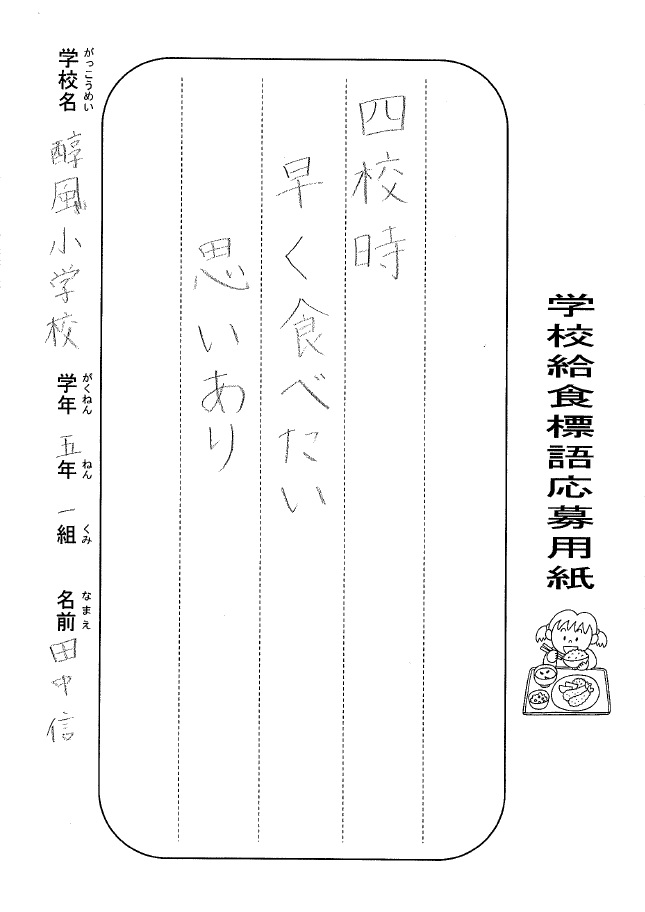 学校給食標語応募用紙
四校時
早く食べたい
思いあり
がっこうめい
学校名 醇風小学校
がくねん ねん くみ
学年 五年 一組
なまえ
名前 田中信